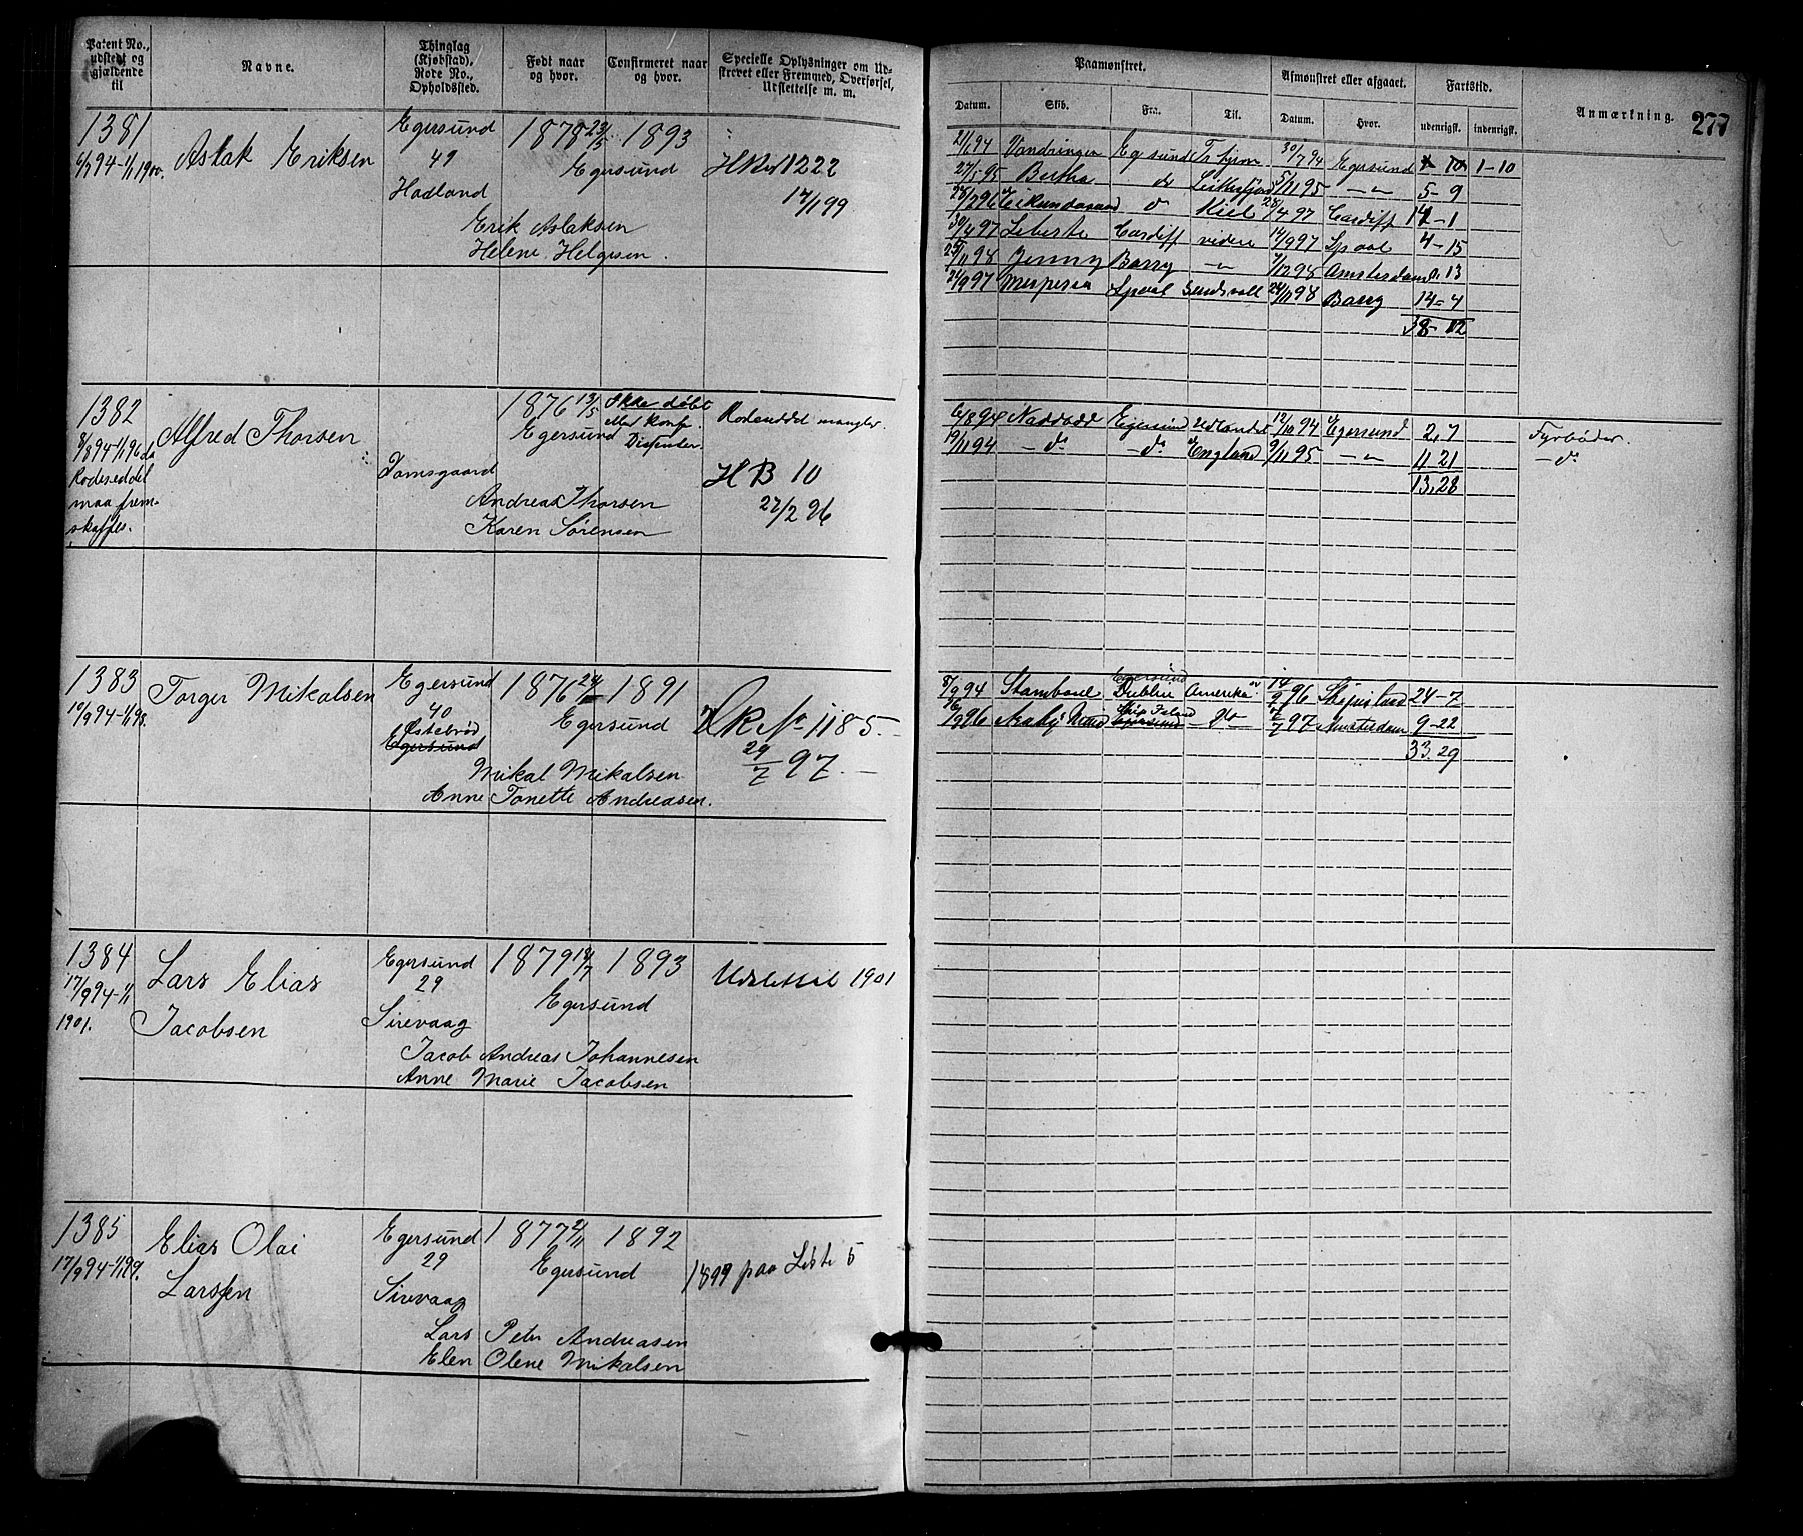 Patent No., udstedt og gjældende til
Navne.
Thinglag (Kjøbstad), Rode No., Opholdssted.
Født naar og hvor.
Confirmeret naar og hvor.
Specielle Oplysninger om Udskrevet eller Fremmed, Overførsel, Udslettelse m. m.
Paamønstret.
Afmønstret eller afgaaet.
Fartstid.
Anmærkning.
277
Datum. Skib. Fra. Til. Datum. Hvor. udenrigsk. indenrigsk.
1381
6/9 94-1/1 1900.
Aslak Eriksen
Egersund
49
Hadland
1878 23/5
1893
Egersund
1222
17/1 99
Erik Aslaksen
Helene Helgesen.
21/1 94 Vandringen Egersund 30/7 94 Egersund 1-10
27/5 95 Bertha do 5/11 95 -"- 5-9
28/2 96 do Kiel 28/4 97 Cardiff 14-1
30/4 97 Liberte Cardiff videre 14/9 97 4-15
98 Jenny Barry -"- 7/12 98 Amsterdam 0.13
24/9 97 24/11 98 Barry 14-4
38-12
1382
8/8 94-1/1 96 da
Rodeseddel
maa frem-
skaffes.
Alfred Thorsen
Damsgaard
1876 13/5
Egersund
Ikke døbt
eller konf.
Dissenter
Rodeseddel mangler.
H B 10
27/2 96
Andreas Thorsen
Karen Sørensen
6/8 94 Naddodd Egersund Udlandet 12/10 94 Egersund 2,7 Fyrbøder.
12/11 94 -do- -do- England 9/11 95 -"- 11 21 -do-
13,28
1383
10/9 94-1/1 98.
Torger Mikalsen
Egersund
40
Østebrød
Egersund
1876 24/
1891
Egersund
HR No 1185.-
29/7 97.-
Mikal Mikalsen
Anne Tonette Andreasen.
Egersund
8/9 94 Stamboul Dublin Amerika 14/9 96 24-7
96 97 Amsterdam 9-22
33.29
1384
17/9 94-1/1
1901.
Lars Elias
Jacobsen
Egersund
29
Sirevaag
1879 18/7
1893
Egersund
Udslettet 1901
Jacob Andreas Johannesen
Anne Marie Jacobsen
1385
17/9 94-1/1 99.
Elias Olai
Larssen
Egersund
29
Sirevaag
1877 2/11
1892
Egersund
1899 paa Liste 5
Lars Peter Andreasen
Elen Olene Mikalsen